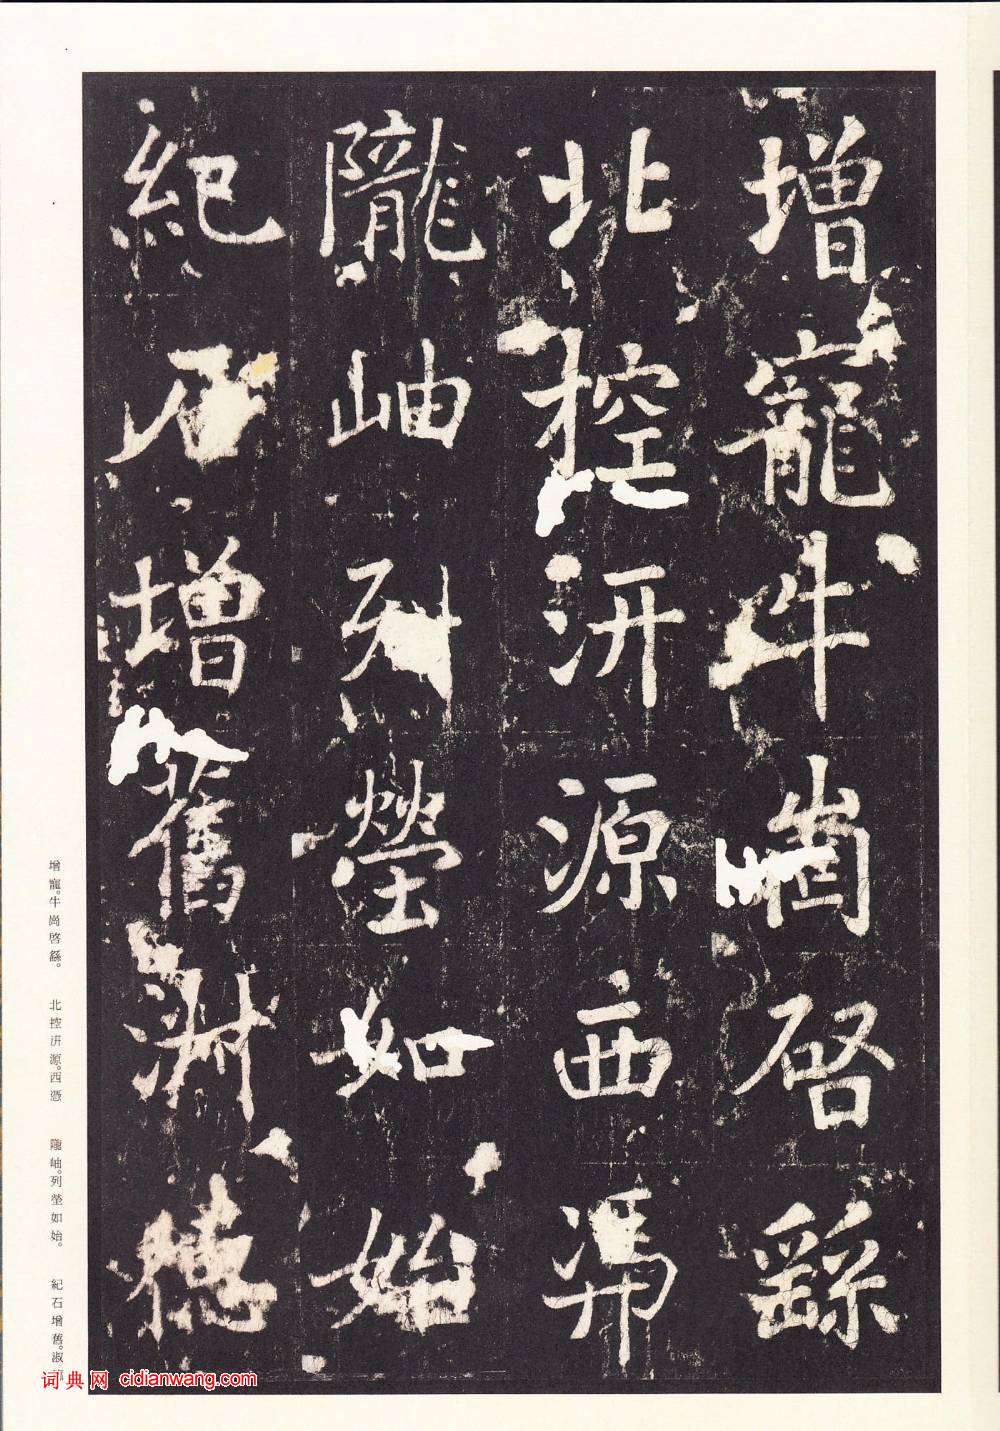 增寵牛崗啓繇
北控汧源西馮
隴岫列塋如始
紀石增舊淑德
增寵。牛崗啓繇。 北控汧源。西憑 隴岫。列塋如始。 紀石增舊。淑
词典网 cidianwang.com